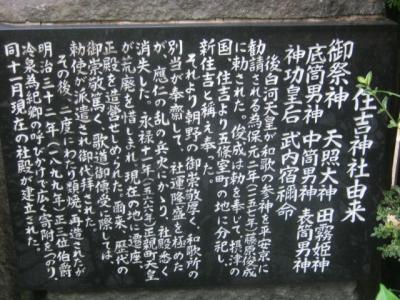 住吉神社由来
御祭神　天照大神　田霧姫神
底筒男神　中筒男神　表筒男神
神功皇后　武内宿禰命
後白河天皇が和歌の参神を平安京に
勧請される為保元二年（一一五七年）藤原俊成
に勅された。俊成は勅を奉じて、摂津の
国、住吉より五條室町の地に分祀し、
新住吉と称え奉った。
それより朝野の御崇敬厚く、和歌所の
別当が奉斎して、社運隆盛を極めた
が、應仁の乱の兵火にかゝり、社殿悉く
消失した。永禄十一年（一五六八年）正親町天皇
が荒廃を惜しまれ、現在の地に遷座、
正殿を造営せしめられた。爾来、歴代の
御崇敬篤く、歌道御傳受に際しては、
勅使が派遣され御代拝された。
その後、二度にわたり類焼、再造されたが
明治三十二年（一八九九年）正三位伯爵
冷泉為紀卿の呼びかけで広く寄附をつのり、
同十一月現在の社殿が建立された。